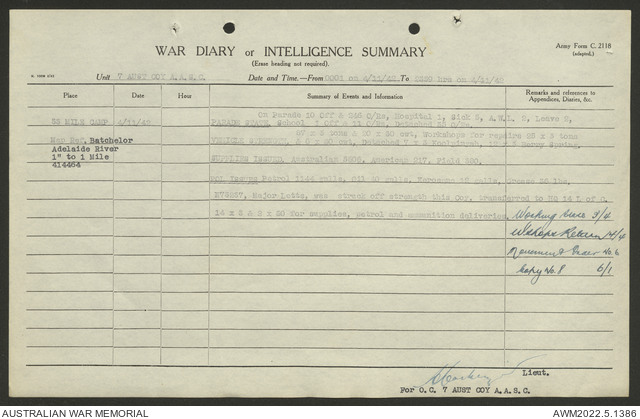 Army Form C. 2118
(adapted).
WAR DIARY or INTELLIGENCE SUMMARY
(Erase heading not required).
Unit 7 AUST COY A.A.S.C. Date and Time.—From 0001 on 4/11/42 To 2359 hrs on 4/11/42
Place Date Hour Summary of Events and Information Remarks and references to Appendices, Diaries, &c.
55 MILE CAMP 4/11/42 On Parade 10 Off & 246 O/Rs, Hospital 1, Sick 5, A.W.L. 2, Leave 2,
PARADE STATE. School 1 Off & 11 O/Rs, Detached 43 O/Rs
Map Ref. Batchelor
Adelaide River
1" to 1 Mile
414464
67 x 3 tons & 20 x 30 cwt, Workshops for repairs 25 x 3 tons
VEHICLE STRENGTH. & 6 x 30 cwt, Detached Berry Spring.
SUPPLIES ISSUED. Australian American 217, Field
POL ISSUES Petrol 1144 galls, Oil 40 galls, Kerosene galls, Grease lbs.
Major Lotto, was struck off strength this Coy, transferred to HQ 14 L of C.
14 x 3 & 3 x 20 for supplies, petrol and ammunition deliveries.
Working 3/4
W/shops Return 14/4
Movement Order No. 6
Copy No. 8 6/1
Lieut.
For O.C. 7 AUST COY A.A.S.C.
AUSTRALIAN WAR MEMORIAL AWM2022.5.1386